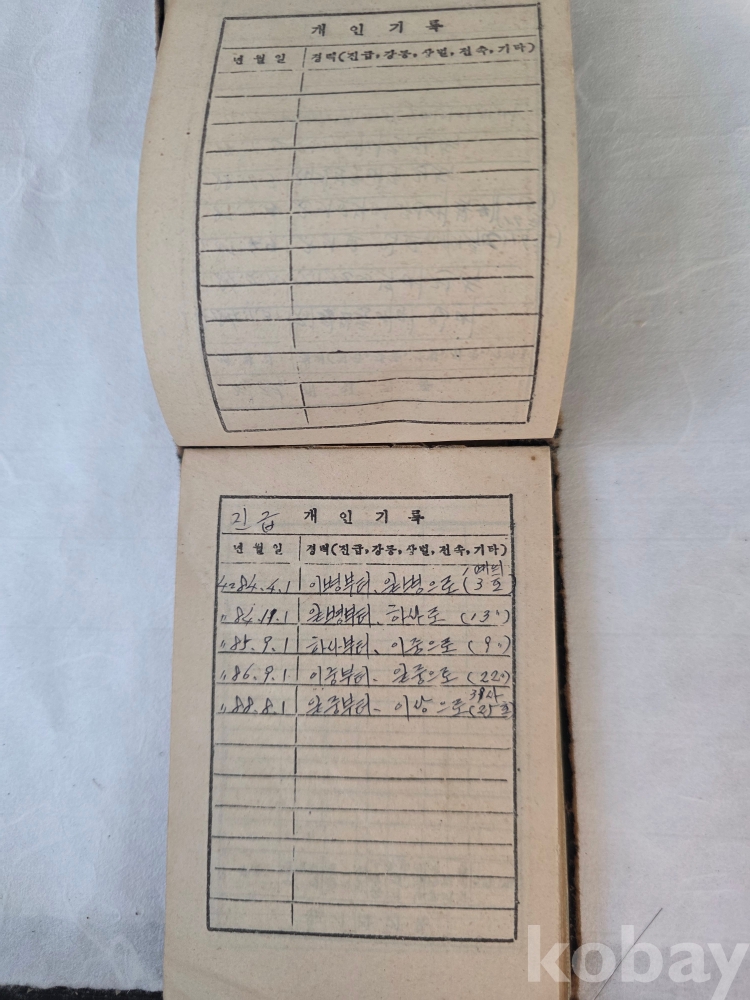 개인기록
년월일 경력(진급,강등,상벌,전속,기타)
진급 개인기록
년월일 경력(진급,강등,상벌,전속,기타)
예의
4284.4.1 이병부터、일병으로(3호)
〃84.11.1 일병부터、하사로(13〃)
〃85.9.1 하사부터、이중으로(9〃)
〃86.9.1 이중부터- 일중으로(22〃)
〃88.8.1 일중부터- 이상으로(25호)
kobay